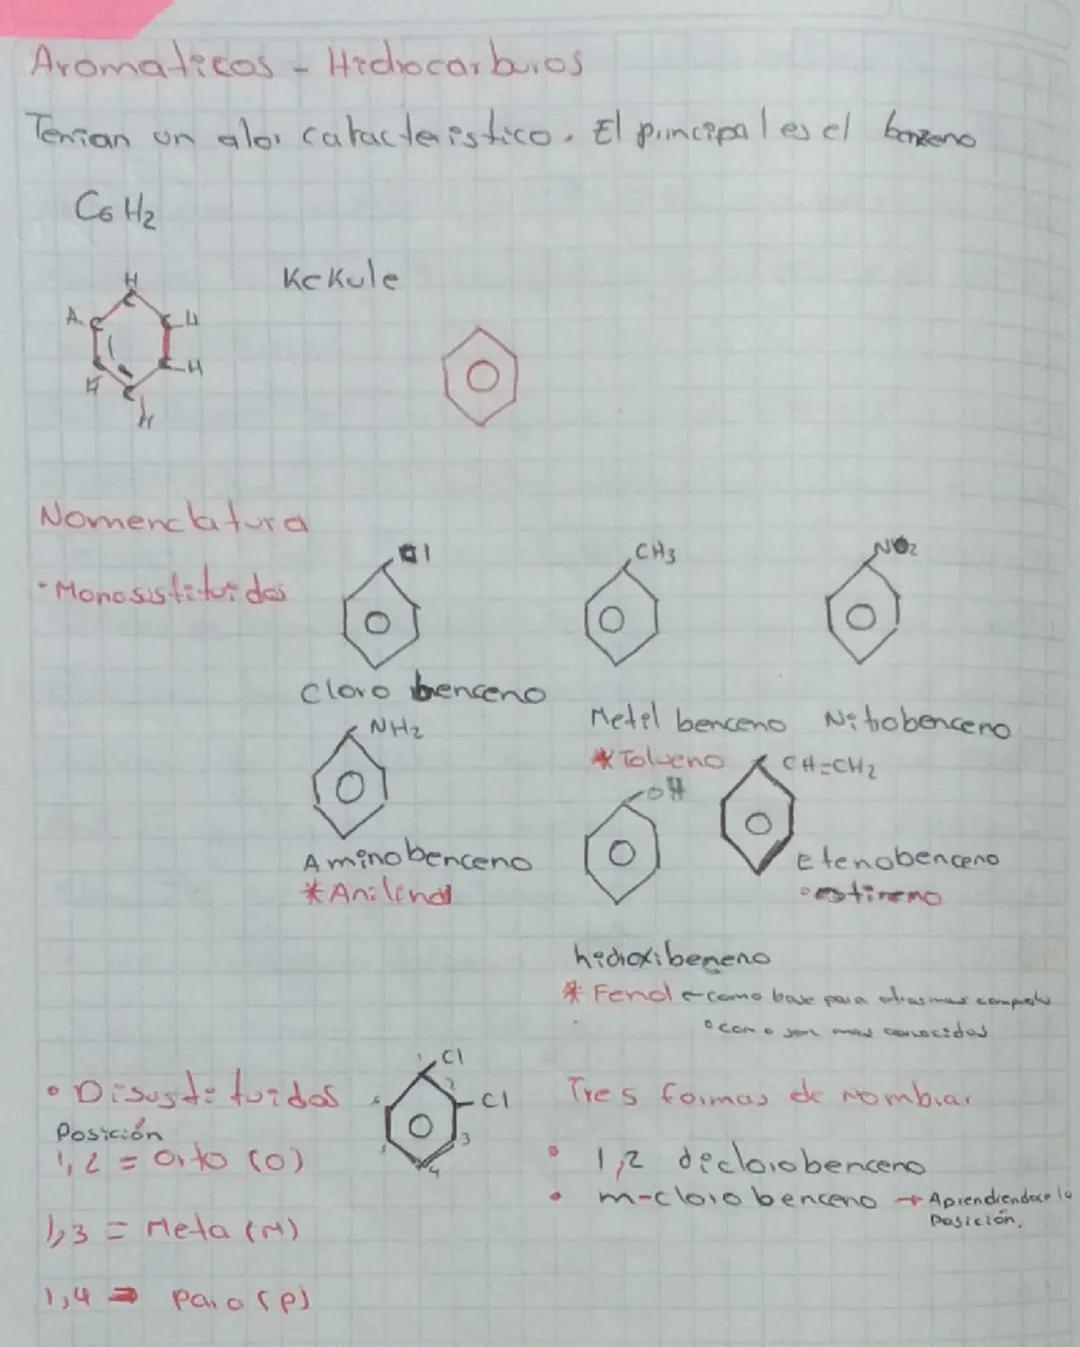 Aromaticos - Hidrocarburos
Tenian un olor caracteristico. El principal es el benzeno
C6 H2
Kekule
H
A. C C H
C C H
H C
H
Nomenclatura
• Monosustituidos
Cl
CH3
NO2
Cloro benceno
Metil benceno
Nitrobenceno
* Tolueno
NH2
CH=CH2
OH
Aminobenceno
Etenobenceno
* Anilina
• estireno
hidroxibeneno
* Fenol ← como base para otras mas
° como son mas conocidas
• Disustituidos
1 Cl
2 Cl
3
4
Tres formas de nombrar
Posición
1,2 = Orto (O)
• 1,2 diclorobenceno
• m-cloro benceno → Aprendiendoce la
Posición.
1,3 = Meta (M)
1,4 = Para (p)